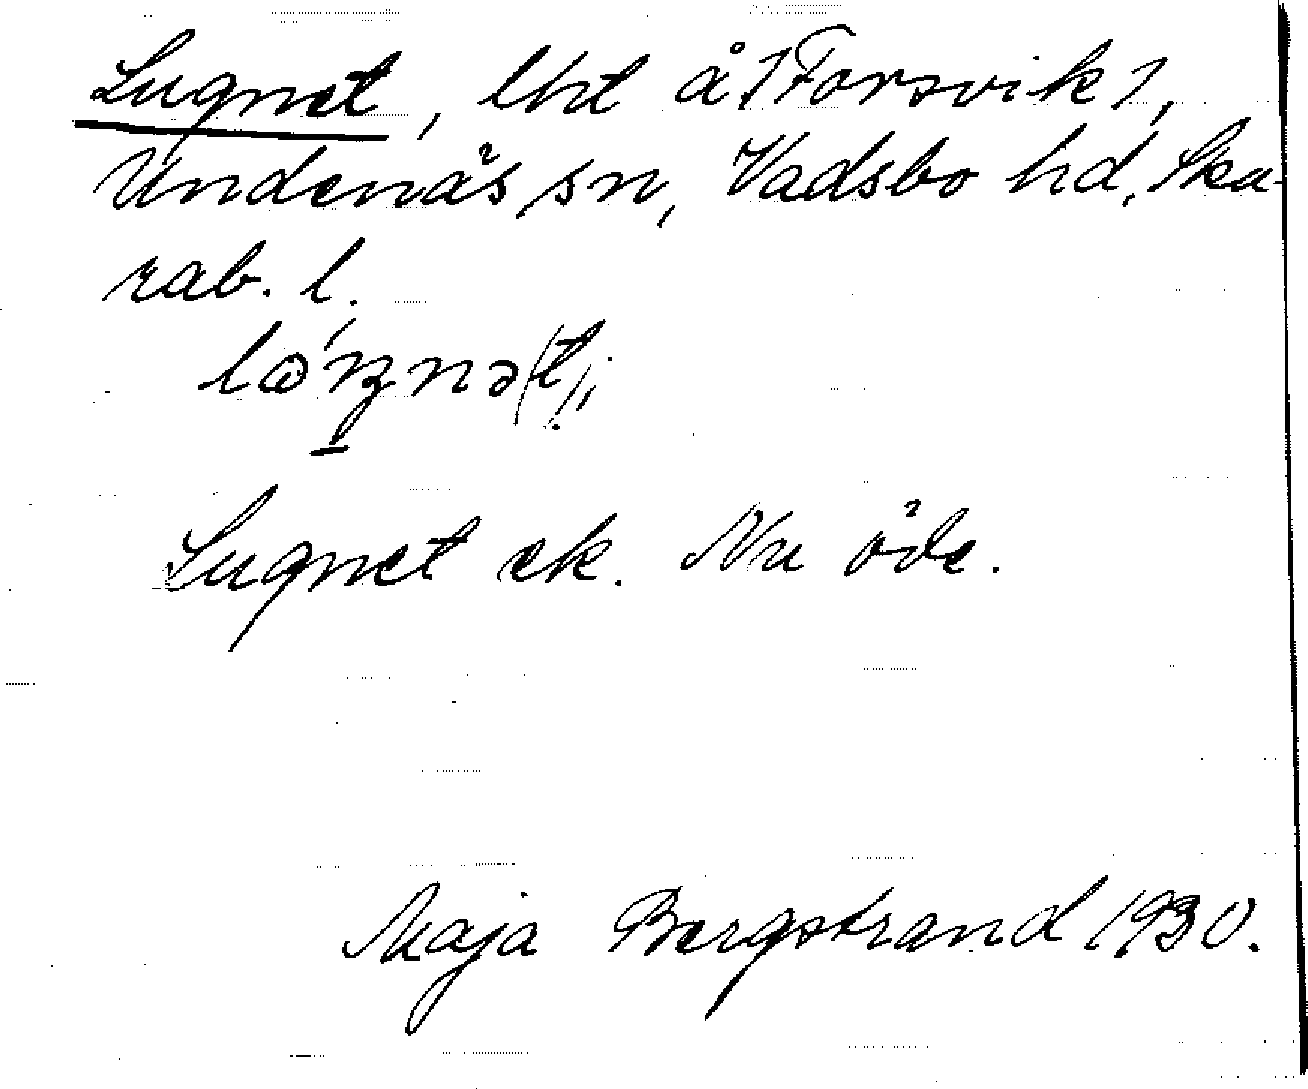 Lugnet, lht å 1 Forsvik 1,
Undenäs sn, Vadsbo hd, Ska-
rab. l.
Lugnet ek. Nu öde.
Maja Bergstrand 1930.